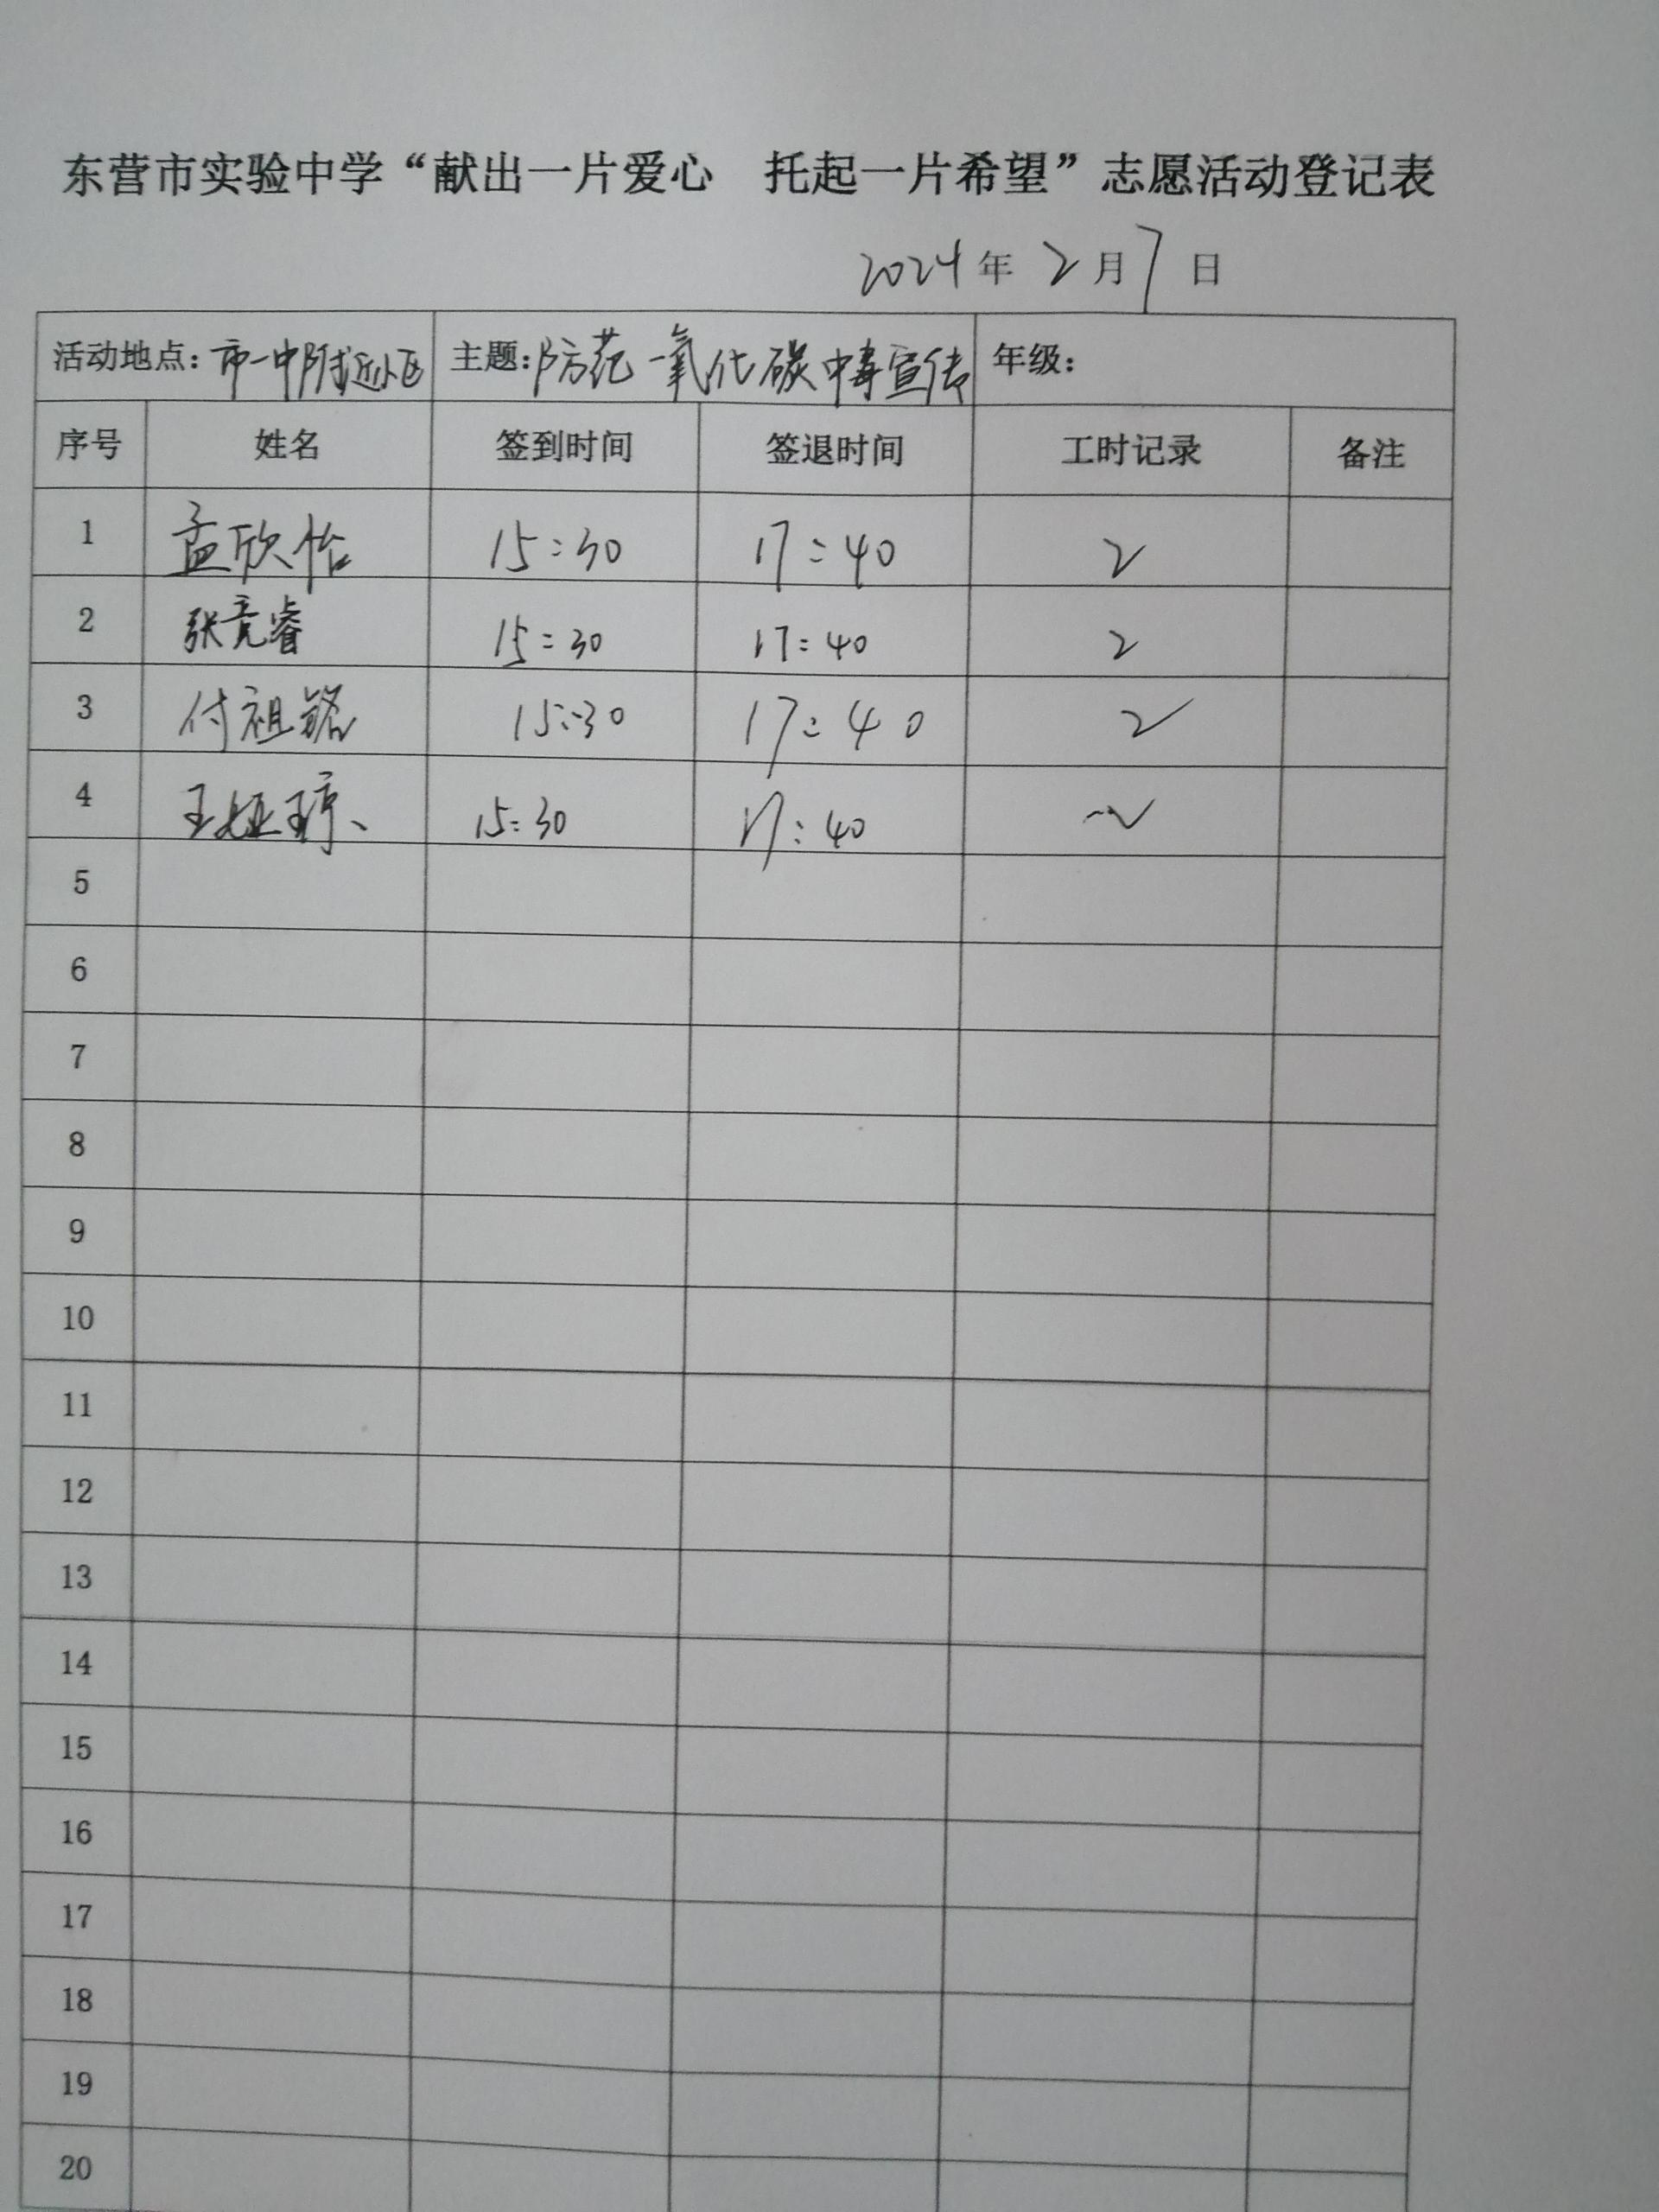 东营市实验中学“献出一片爱心 托起一片希望”志愿活动登记表
2024年2月7日
活动地点：市一中附近小区 主题：防范一氧化碳中毒宣传 年级：
序号 姓名 签到时间 签退时间 工时记录 备注
1 孟欣怡 15:30 17:40 2
2 张竞睿 15:30 17:40 2
3 付祖铭 15:30 17:40 2
4 王娅琼 15:30 17:40 2
5
6
7
8
9
10
11
12
13
14
15
16
17
18
19
20